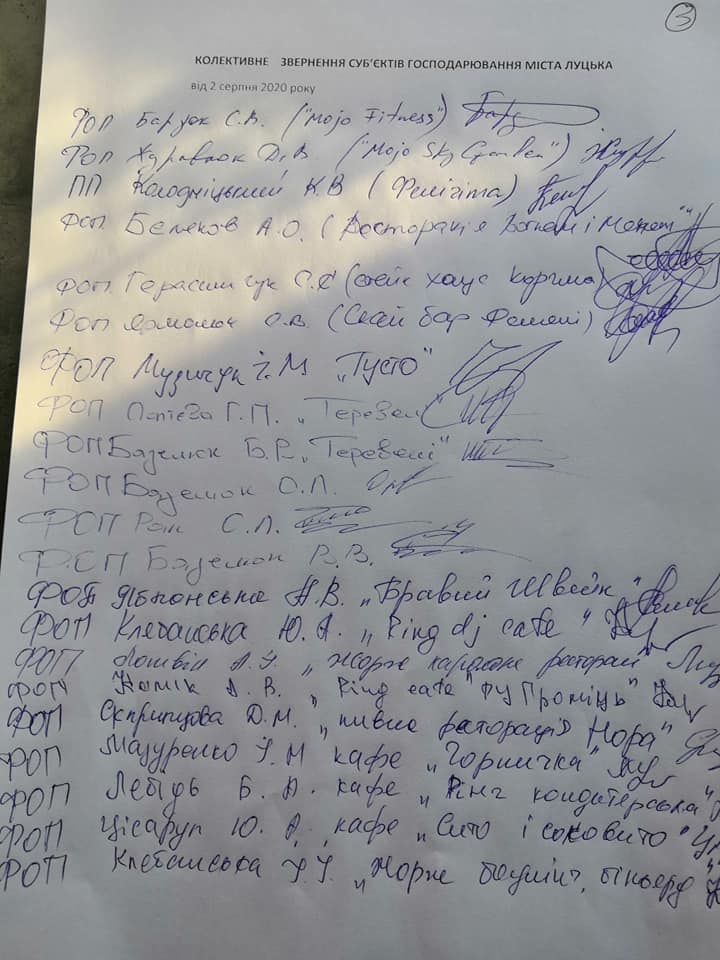 3
КОЛЕКТИВНЕ ЗВЕРНЕННЯ СУБ'ЄКТІВ ГОСПОДАРЮВАННЯ МІСТА ЛУЦЬКА
від 2 серпня 2020 року
ФОП С.В. ("Mojo Fitness")
ФОП ("Mojo Sky Garden")
ПП Колодніцький К.В (Фелічіта)
ФОП А.О. (Ресторація
ФОП Герасимчук (стейк хаус Корчма)
ФОП Ярмолюк О.В. (Скай бар
ФОП Музичук І.М „Густо"
ФОП Г.П. „Теревені
ФОП Базелюк Б.Р. „Теревені"
ФОП Базелюк О.Л.
ФОП С.Л.
ФОП Базелюк В.В.
ФОП Яблонська А.В. „Бравий Швейк"
ФОП Клебанська Ю.А. „Ring dj cafe"
ФОП „Жорж караоке ресторан"
ФОП В. „Ring cafe"
ФОП Скрипцова Д.М. „пивна ресторація Нора"
ФОП Мазуренко І.М кафе „Горничка"
ФОП Лебідь Б. А. кафе „Рінг кондитерська"
ФОП Ю. А. кафе „Сито і соковито"
ФОП Клебанська „Жорж боулінг, більярд"